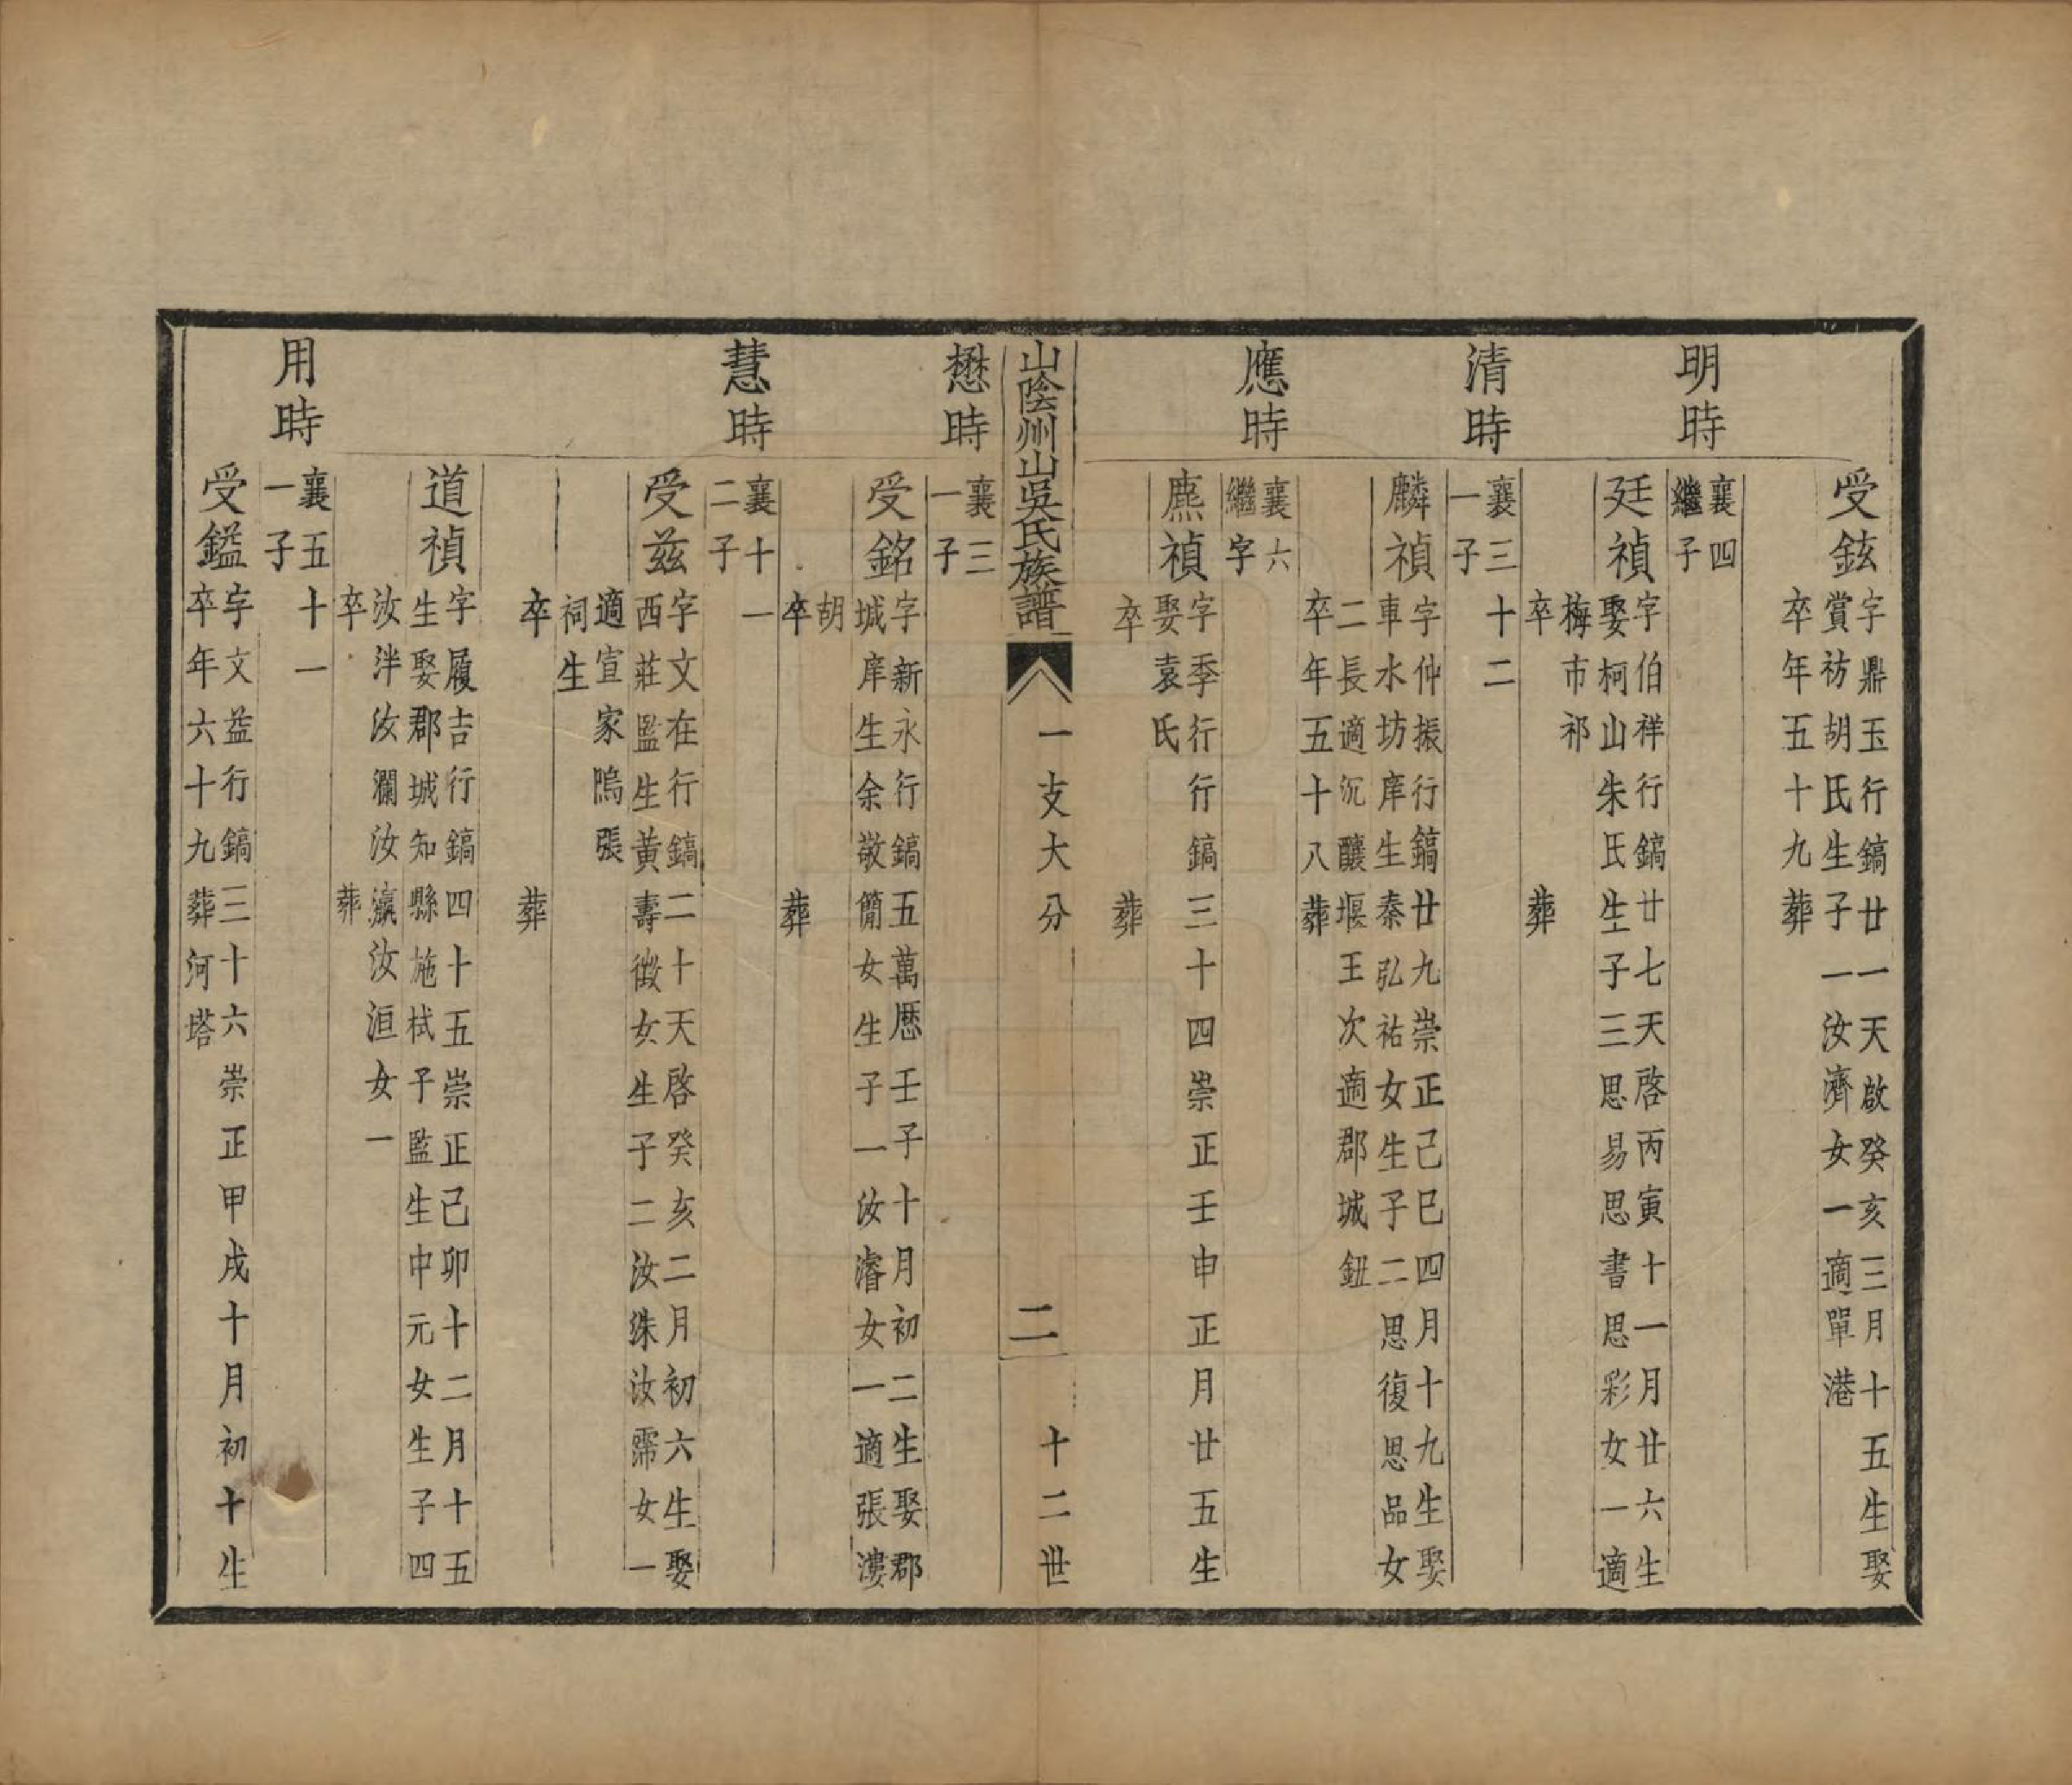 受鉉
字鼎玉行鎬廿一天啟癸亥三月十五生娶
賞祊胡氏生子一汝濟女一適單港
卒年五十九葬
明時
襄四
繼子
廷禎
字伯祥行鎬廿七天啓丙寅十一月廿六生
娶柯山朱氏生子三思易思書思彩女一適
梅市祁
卒 葬
清時
襄三十二
一子
麟禎
字仲振行鎬廿九崇正己巳四月十九生娶
車水坊庠生秦弘祐女生子二思復思品女
二長適沉釀堰王次適郡城鈕
卒年五十八葬
應時
襄六
繼字
麃禎
字季行行鎬三十四崇正壬申正月廿五生
娶袁氏
卒 葬
山陰州山吳氏族譜 一支大分 二 十二世
懋時
襄三
一子
受銘
字新永行鎬五萬厯壬子十月初二生娶郡
城庠生余敬簡女生子一汝濬女一適張漊
胡
卒 葬
慧時
襄十一
二子
受兹
字文在行鎬二十天啓癸亥二月初六生娶
西莊監生黃壽徵女生子二汝洙汝霈女一
適宣家隖張
祠生
卒 葬
道禎
字履吉行鎬四十五崇正己卯十二月十五
生娶郡城知縣施栻子監生中元女生子四
汝泮汝瀾汝瀛汝洹女一
卒 葬
用時
襄五十一
一子
受鎰
字文益行鎬三十六崇正甲戌十月初十生
卒年六十九葬河塔